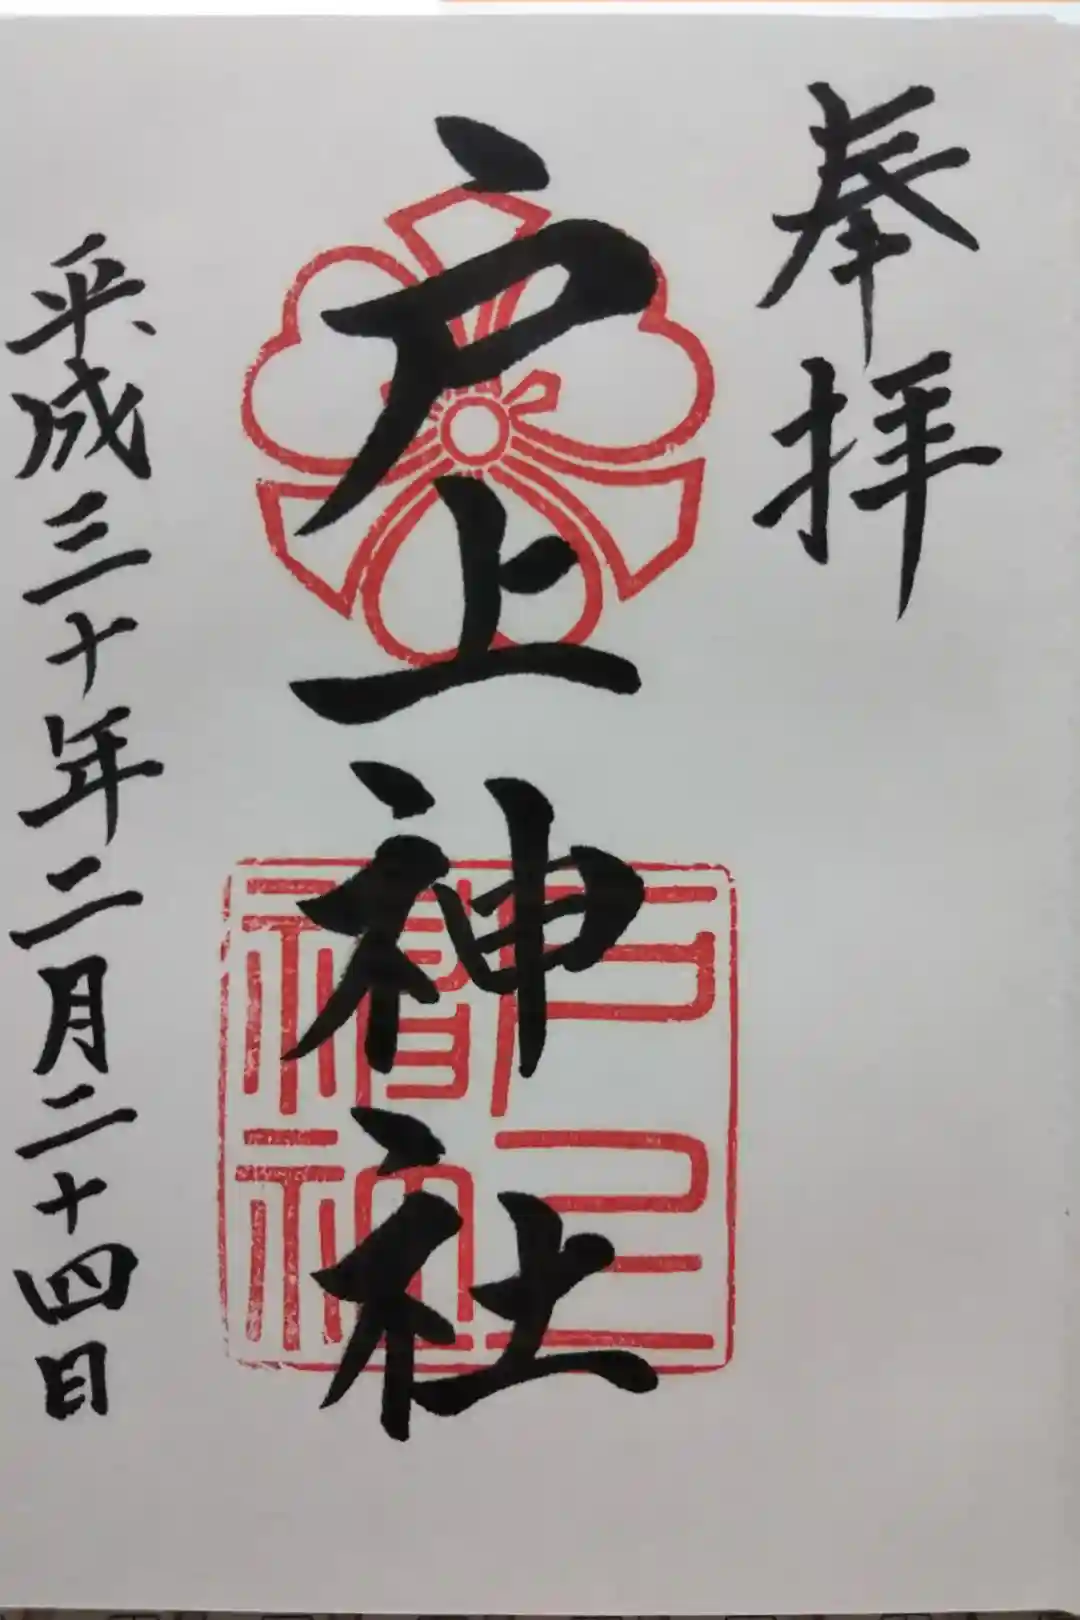 奉拝
戸上神社
平成三十年二月二十四日